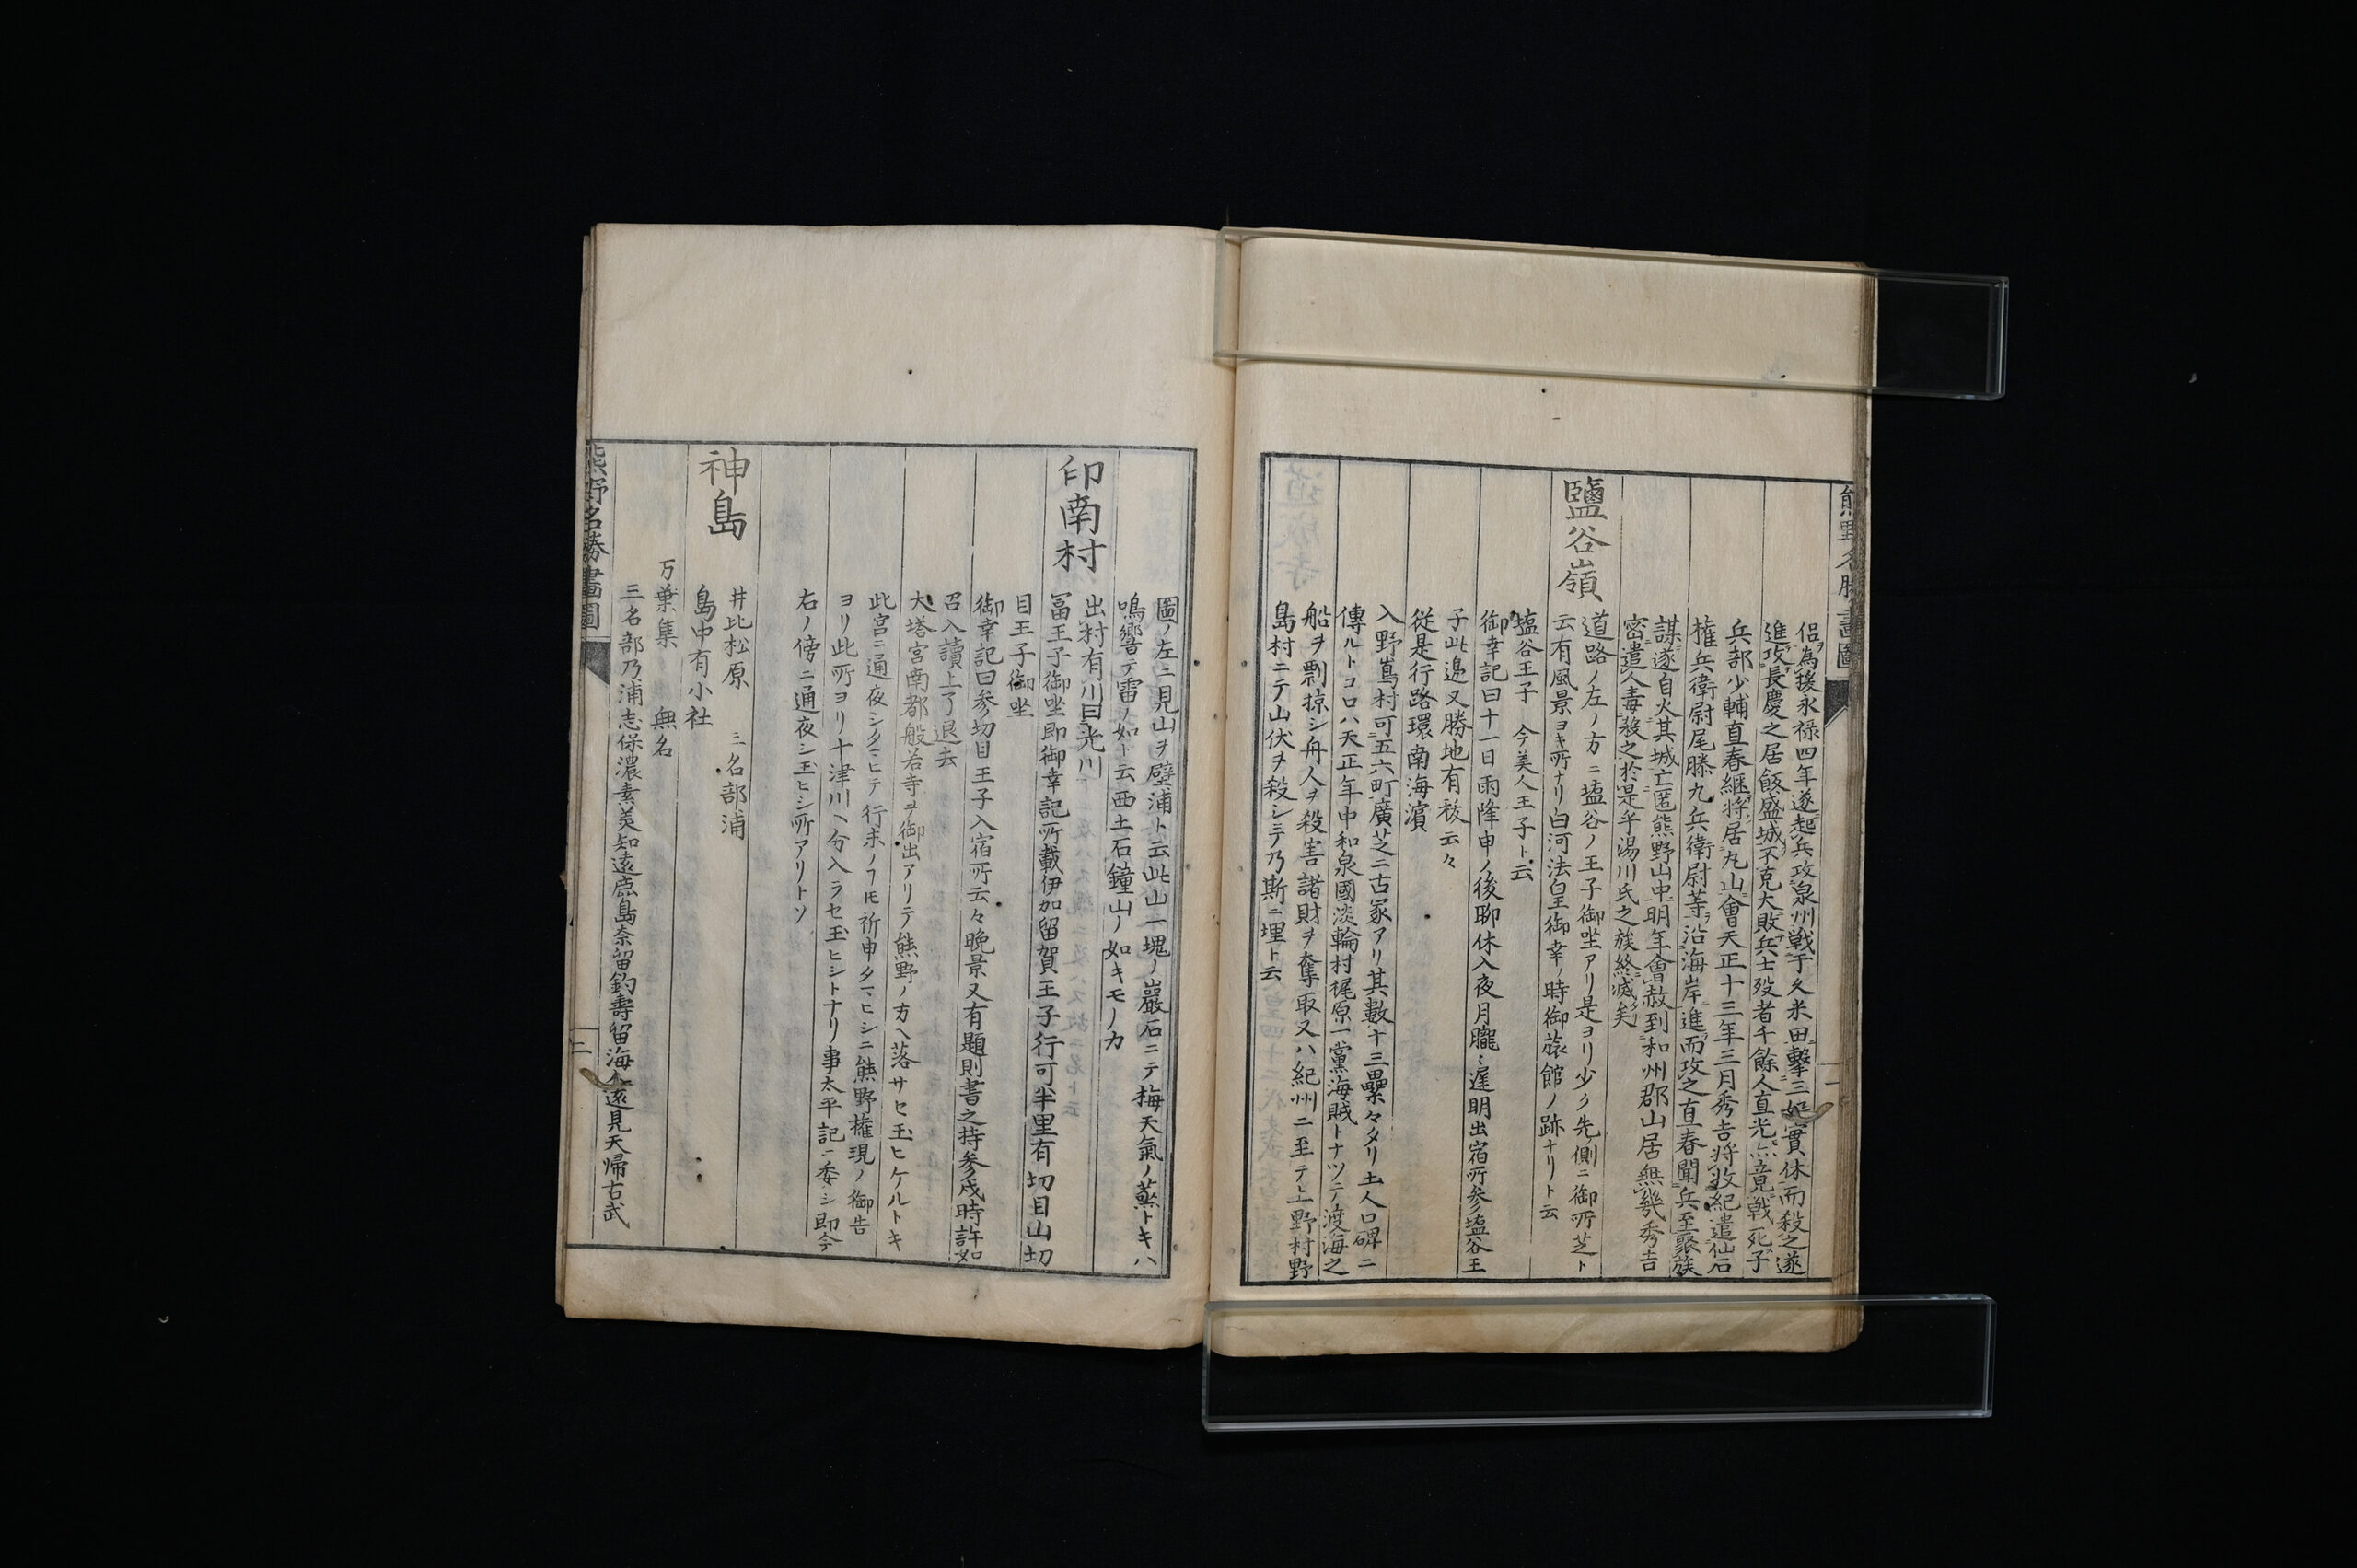 熊野名勝畫圖
侶為援永禄四年遂起兵攻泉州戦于久米田撃三好實休而殺之遂
進攻長慶之居飯盛城不克大敗兵士殁者千餘人直光亦竟戦死子
兵部少輔直春継将居丸山會天正十三年三月秀吉将攻紀遣仙石
権兵衛尉尾藤九兵衛尉等沿海岸進而攻之直春聞兵至聚族
謀遂自火其城亡匿熊野山中明年會赦到和州郡山居無幾秀吉
密遣人毒殺之於是乎湯川氏之族終滅矣
鹽谷嶺
道路ノ左ノ方ニ塩谷ノ王子御坐アリ是ヨリ少ク先側ニ御所芝ト
云有風景ヨキ所ナリ白河法皇御幸ノ時御旅館ノ跡ナリト云
塩谷王子　今美人王子ト云
御幸記曰十一日雨降申ノ後聊休入夜月朧〻遅明出宿所参塩谷王
子此邊又勝地有祓云々
従是行路環南海濱
入野嶌村可五六町廣芝ニ古冢アリ其數十三纍々タリ土人口碑ニ
傳ルトコロハ天正年中和泉國淡輪村梶原一黨海賊トナツテ渡海之
船ヲ剽掠シ舟人ヲ殺害諸財ヲ奪取又ハ紀州ニ至テ上野村野
島村ニテ山伏ヲ殺シテ乃斯ニ埋ト云
圖ノ左ニ見山ヲ壁浦ト云此山一塊ノ巖石ニテ梅天氣ノ蒸トキハ
鳴響テ雷ノ如ト云西土石鐘山ノ如キモノカ
印南村
出村有川曰光川
冨王子御坐即御幸記所載伊加留賀王子行可半里有切目山切
目王子御坐
御幸記曰参切目王子入宿所云々晩景又有題則書之持参戌時許如
召入讀上了退去
大塔宮南都般若寺ヲ御出アリテ熊野ノ方ヘ落サセ玉ヒケルトキ
此宮ニ通夜シタマヒテ行末ノヿ𪜈祈申タマヒシニ熊野権現ノ御告
ヨリ此所ヨリ十津川ヘ分入ラセ玉ヒシトナリ事太平記ニ委シ即今
右ノ傍ニ通夜シ玉ヒシ所アリトソ
神島
井比松原　三名部浦
島中有小社
万葉集　無名
三名部乃浦志保濃素美知遠鹿島奈留釣壽留海人遠見天帰古武
熊野名勝畫圖
二